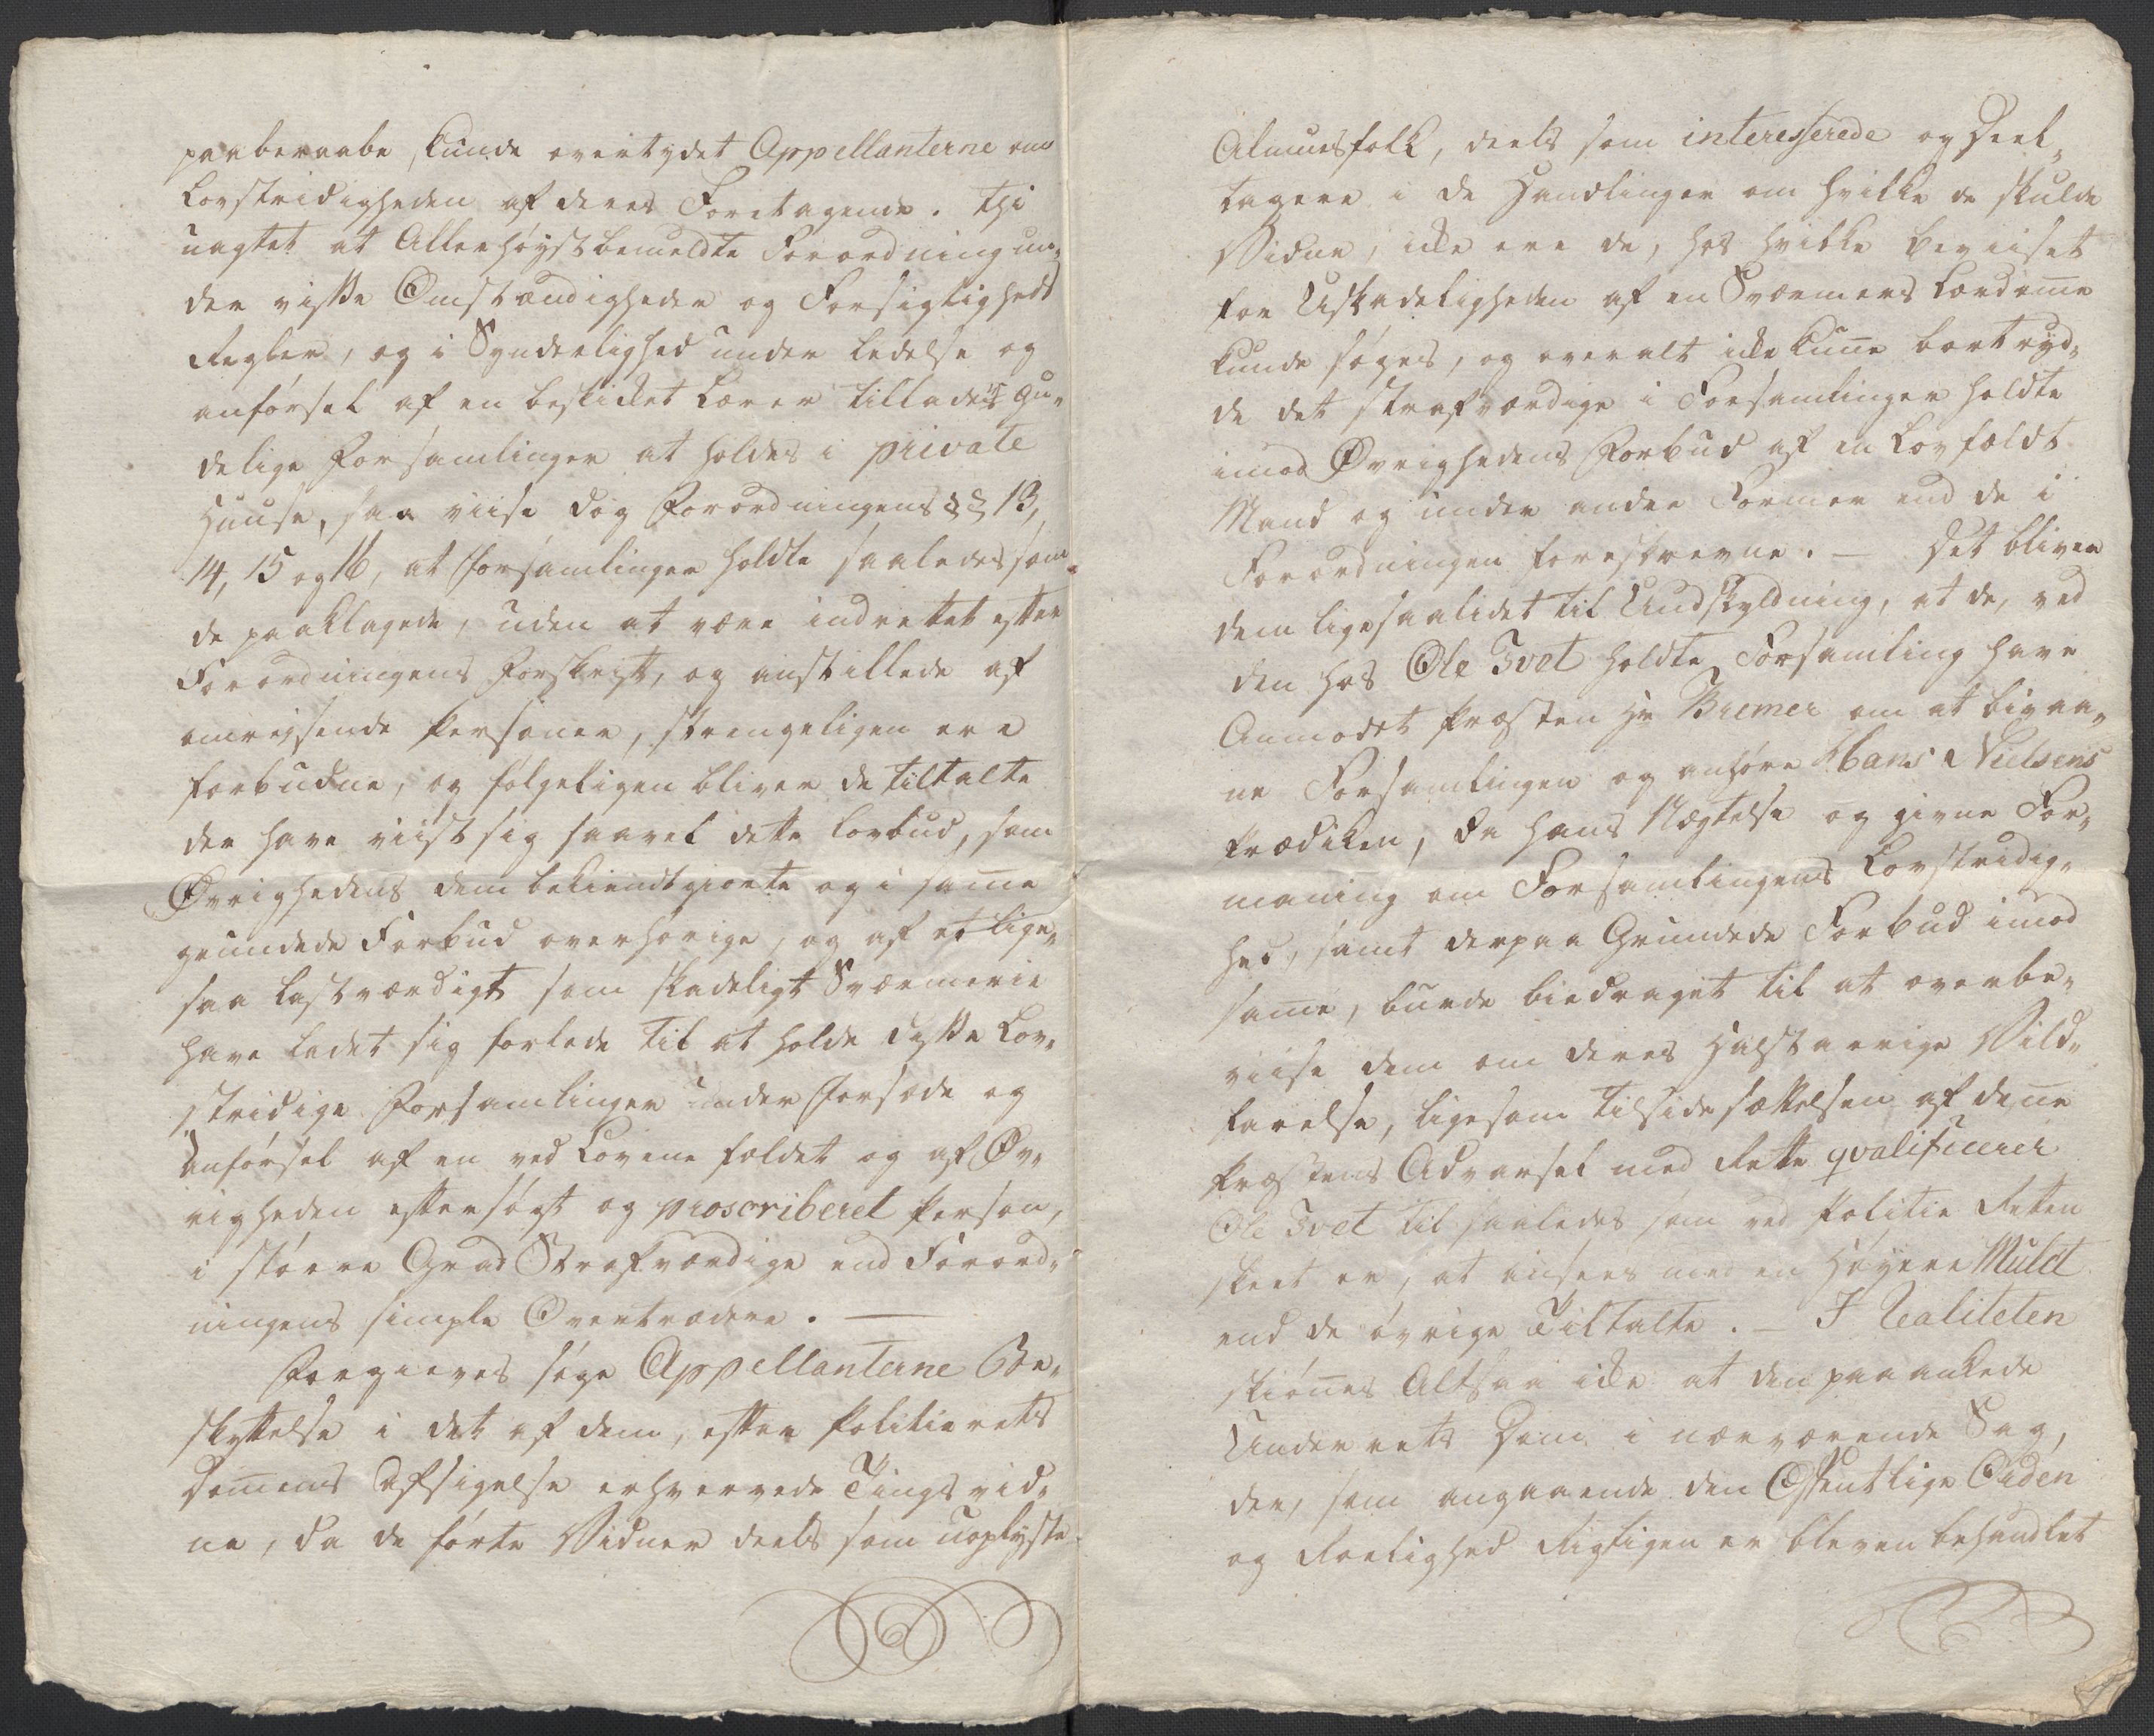 paaberaabe, kunde overtydet Appellanterne om
Lovstridigheden af deres Foretagende. Thi
uagtet at Allerhøystbemeldte Forordning un„
der visse Omstændigheder og Forsigtigheds
Regler, og i Synderlighed under Ledelse og
anførsel af en beskikket Lærer tillader gu„
delige Forsamlinger at holdes i private
Huuse, saa viise dog Forordningens §§ 13,
14, 15 og 16, at Forsamlinger holdte saaledes som
de paaklagede, uden at være indrettet efter
Forordningens Forskrift, og anstillede af
omreysende Personer, strengeligen ere
forbudne, og følgeligen bliver de tiltalte
der have viist sig saavel dette Lovbud, som
Øvrighedens dem bekiendtgiorte og i samme
grundede Forbud overhørige, og af et lige„
saa lastværdigt som skadeligt Sværmerie
have ladet sig forlede til at holde disse Lov„
stridige Forsamlinger under Forsæde og
Anførsel af en ved Lovene fældet og af Øv„
righeden eftersøgt og proscriberet Person,
i større Grad Strafværdige end Forord„
ningens simple Overtrædere. —
Forgieves søge Appellanterne Be„
skyttelse i det af dem, efter Politierets
Dommens Afsigelse erhvervede Tingsvid„
ne, da de førte Vidner deels som uoplyste
Almuesfolk, deels som interesserede og Deel„
tagere i de Handlinger om hvilke de skulde
Vidne, ikke ere de, hos hvilke beviiset
for Uskadeligheden af en Sværmers Lærdomme
kunde søges, og overalt ikke kunne bortryd„
de det strafværdige i Forsamlinger holdte
imod Øvrighedens Forbud af en Lovfældt
Mand og under andre Former end de i
Forordningen foreskrevne. — Det bliver
dem ligesaalidet til Undskyldning, at de, ved
den hos Ole Tvet holdte Forsamling have
Anmodet Præsten Hr Bremer om at bivaa„
ne Forsamlingen og anhøre Hans Nielsens
Prædiken, da hans Nægtelse og givne For„
maning om Forsamlingens Lovstridig„
hed, samt derpaa Grundede Forbud imod
samme, burde biedraget til at overbe„
viise dem om deres Halstarrige Vild„
farelse, ligesom tilsidesættelsen af denne
Præstens Advarsel med Rette qvalificerer
Ole Tvet til saaledes som ved Politie Retten
skeet er, at ansees med en Høyere Mulct
end de øvrige Tiltalte. — I Realiteten
skiønnes Altsaa ikke at den paaankede
Underrets Dom i nærværende Sag,
der, som angaaende den Offentlige Orden
og Roelighed Rigtigen er bleven behandlet